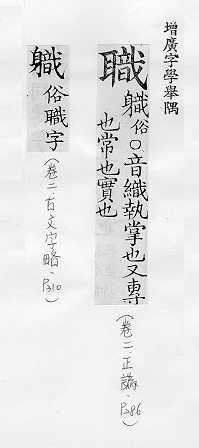 增廣字學舉隅
職
軄俗○音織執掌也又專
也常也實也
(卷二.正譌.P286)
軄
俗職字
(卷二.古文字略.P310)